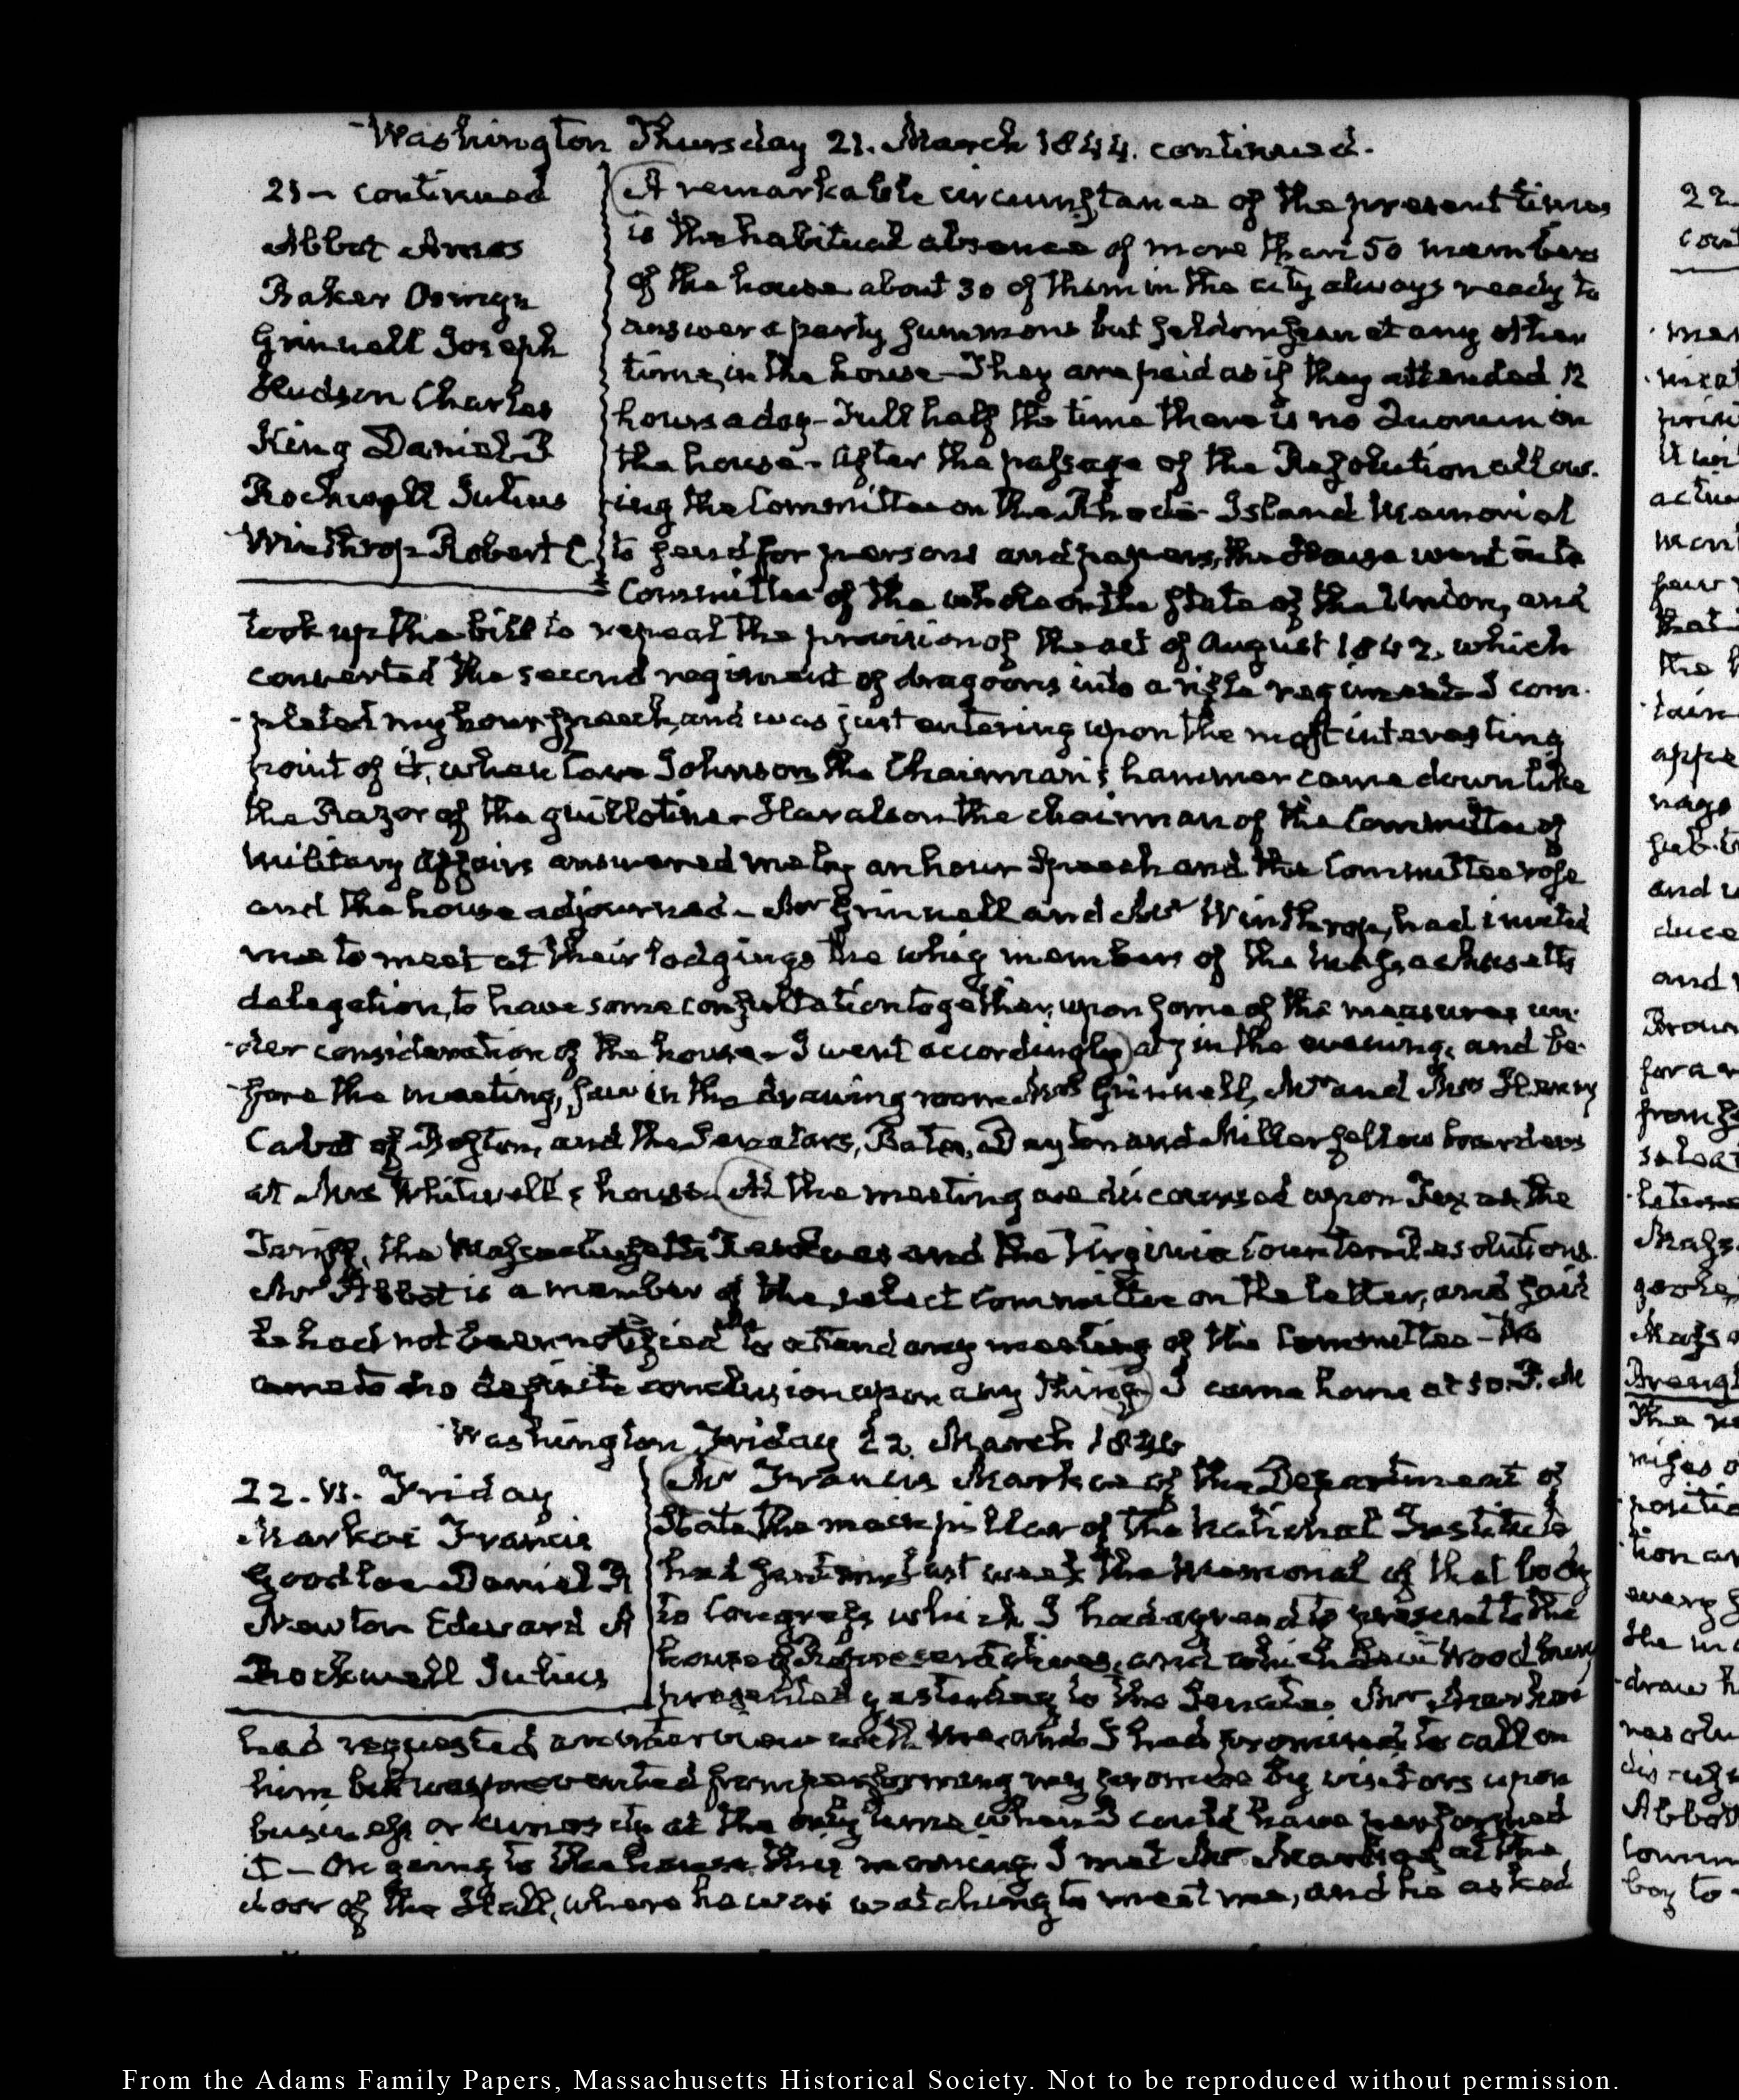 Washington Thursday 21. March 1844. continued.
21 - continued
Abbot Amos
Baker Osmyn
Grinnell Joseph
Hudson Charles
King Daniel P
Rockwell Julius
Winthrop Robert C.
A remarkable circumstance of the present times
is the habitual absence of more than 50 members
of the house about 30 of them in the city always ready to
answer a party summons but seldom seen at any other
time, in the house - They are paid as if they attended 12
hours a day - Full half the time there is no Quorum in
the house - After the passage of the Resolution allow-
ing the Committee on the Rhode-Island Memorial
to send for persons and papers, the House went into
Committee of the whole on the State of the Union, and
took up the bill to repeal the provision of the act of August 1842. which
converted the second regiment of dragoons into a rifle regiment I com-
-pleted my hour speech, and was just entering upon the most interesting
point of it, when Cave Johnson the Chairman's hammer came down like
the Razor of the guillotine - Haralson the chairman of the Committee of
Military Affairs answered me by an hour speech and the Committee rose
and the house adjourned - Mr Grinnell and Mr Winthrop, had invited
me to meet at their lodgings the whig members of the Massachusetts
delegation, to have some consultation together, upon some of the measures un-
-der consideration of the house - I went accordingly at 7 in the evening, and be-
-fore the meeting, saw in the drawing room Mrs Grinnell, Mr and Mrs Henry
Cabot of Boston, and the Senators, Bates, Dayton and Miller fellow boarders
at Mrs Whitwell's house. At the meeting we discoursed upon Texas, the
Tariff, the Massachusetts Resolves and the Virginia Counter-Resolutions.
Mr Abbot is a member of the select Committee on the latter, and said
he had not been notified to attend any meeting of the Committee - We
came to no definite conclusion upon any thing I came home at 10. P. M
Washington Friday 22. March 1844
22. VI. Friday
Markoe Francis
Goodloe Daniel R
Newton Edward A
Rockwell Julius
Mr Francis Markoe of the Department of
State, the main pillar of the National Institute
had sent me last week the Memorial of that body
to Congress which I had agreed to present to the
house of Representatives, and which Levi Woodbury
presented yesterday to the Senate. Mr Markoe
had requested an interview with me, and I had promised to call on
him but was prevented from performing my promise by visitors upon
business or curiosity at the only time when I could have performed
it - On going to the house this morning I met Mr Markoe at the
door of the Hall, where he was watching to meet me, and he asked